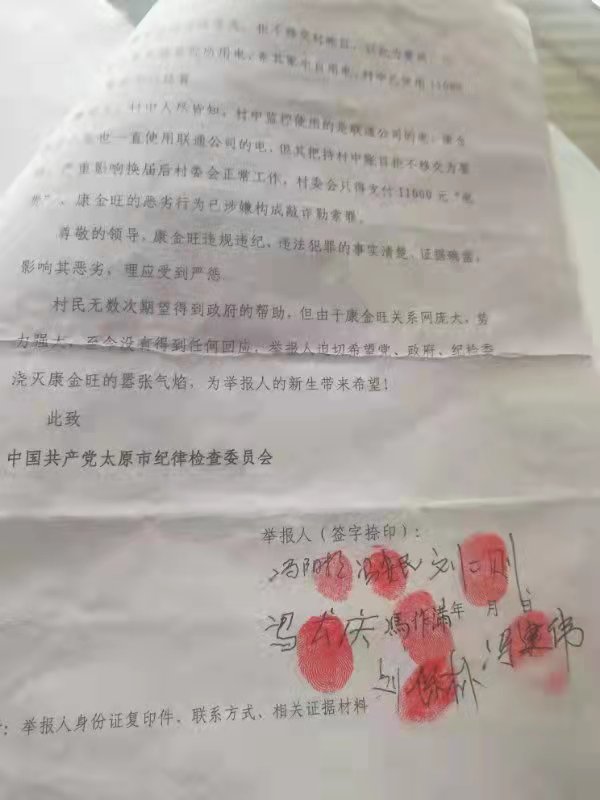 但不移交村账目，以此为要挟，
用电，村中已使用11000
村中人尽皆知，村中监控使用的是联通公司的电，康金
也一直使用联通公司的电，但其把持村中账目拒不移交为要
重影响换届后村委会正常工作，村委会只得支付11000元“电
费”，康金旺的恶劣行为已涉嫌构成敲诈勒索罪。
尊敬的领导，康金旺违规违纪、违法犯罪的事实清楚、证据确凿，
影响其恶劣，理应受到严惩
村民无数次期望得到政府的帮助，但由于康金旺关系网庞大，势
力强大，至今没有得到任何回应，举报人迫切希望党、政府、纪检委
浇灭康金旺的嚣张气焰，为举报人的新生带来希望！
此致
中国共产党太原市纪律检查委员会
举报人（签字捺印）：
刘
冯 庆 馮作满 年 月 日
冯 伟
刘
：举报人身份证复印件、联系方式、相关证据材料